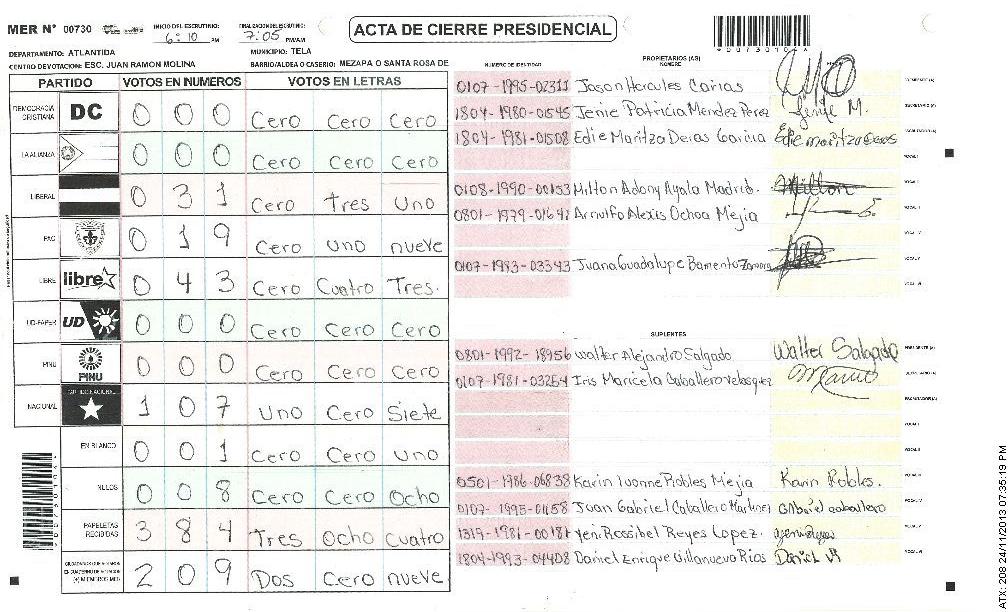 MER N° 00730
INICIO DEL ESCRUTINIO: 6:10 PM
FINALIZACION DEL ESCRUTINIO: 7:05 PM/AM
ACTA DE CIERRE PRESIDENCIAL
DEPARTAMENTO: ATLANTIDA
MUNICIPIO: TELA
CENTRO DE VOTACION: ESC. JUAN RAMON MOLINA
BARRIO/ALDEA O CASERIO: MEZAPA O SANTA ROSA DE
PARTIDO VOTOS EN NUMEROS VOTOS EN LETRAS
DEMOCRACIA CRISTIANA DC 0 0 0 Cero Cero Cero
LA ALIANZA 0 0 0 Cero Cero Cero
LIBERAL 0 3 1 Cero Tres Uno
PAC 0 1 9 Cero Uno nueve
LIBRE libre 0 4 3 Cero Cuatro Tres.
UD-FAPER UD 0 0 0 Cero Cero Cero
PINU PINU 0 0 0 Cero Cero Cero
NACIONAL PARTIDO NACIONAL 1 0 7 Uno Cero Siete
EN BLANCO 0 0 1 Cero Cero Uno
NULOS 0 0 8 Cero Cero Ocho
PAPELETAS RECIBIDAS 3 8 4 Tres Ocho Cuatro
2 0 9 Dos Cero nueve
NUMERO DE IDENTIDAD PROPIETARIOS (AS) NOMBRE
0107-1995-02311 Jason Hercules Carias
1804-1980-01545 Jenie Patricia Mendez Perez Jenie M.
1804-1981-01508 Edie Maritza Deras Garcia Edie maritza Deras
0108-1990-00153 Milton Adony Ayala Madrid. Milton
0801-1979-01641 Arnulfo Alexis Ochoa Mejia
0107-1983-03343 Juana Guadalupe Barmento Zamora
SUPLENTES
0801-1992-18956 Walter Alejandro Salgado Walter Salgado
0107-1981-03264 Iris Maricela Caballero Velasquez
0501-1986-06838 Karin Ivonne Robles Mejia Karin Robles.
0107-1995-01158 Juan Gabriel Caballero Martinez Gabriel caballero
1319-1981-00181 Yeni Rossibel Reyes Lopez.
1804-1993-04408 Daniel Enrique Villanueva Rios Daniel VR
ATX: 208 24/11/2013 07:35:19 PM